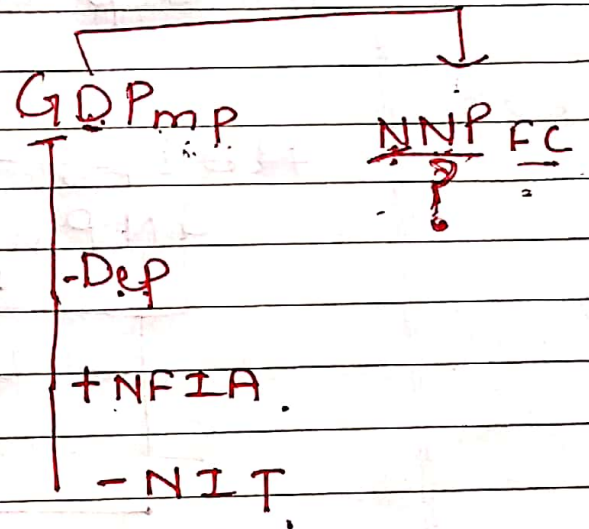 GDPmp NNP FC
?
-Dep
+NFIA.
-NIT.